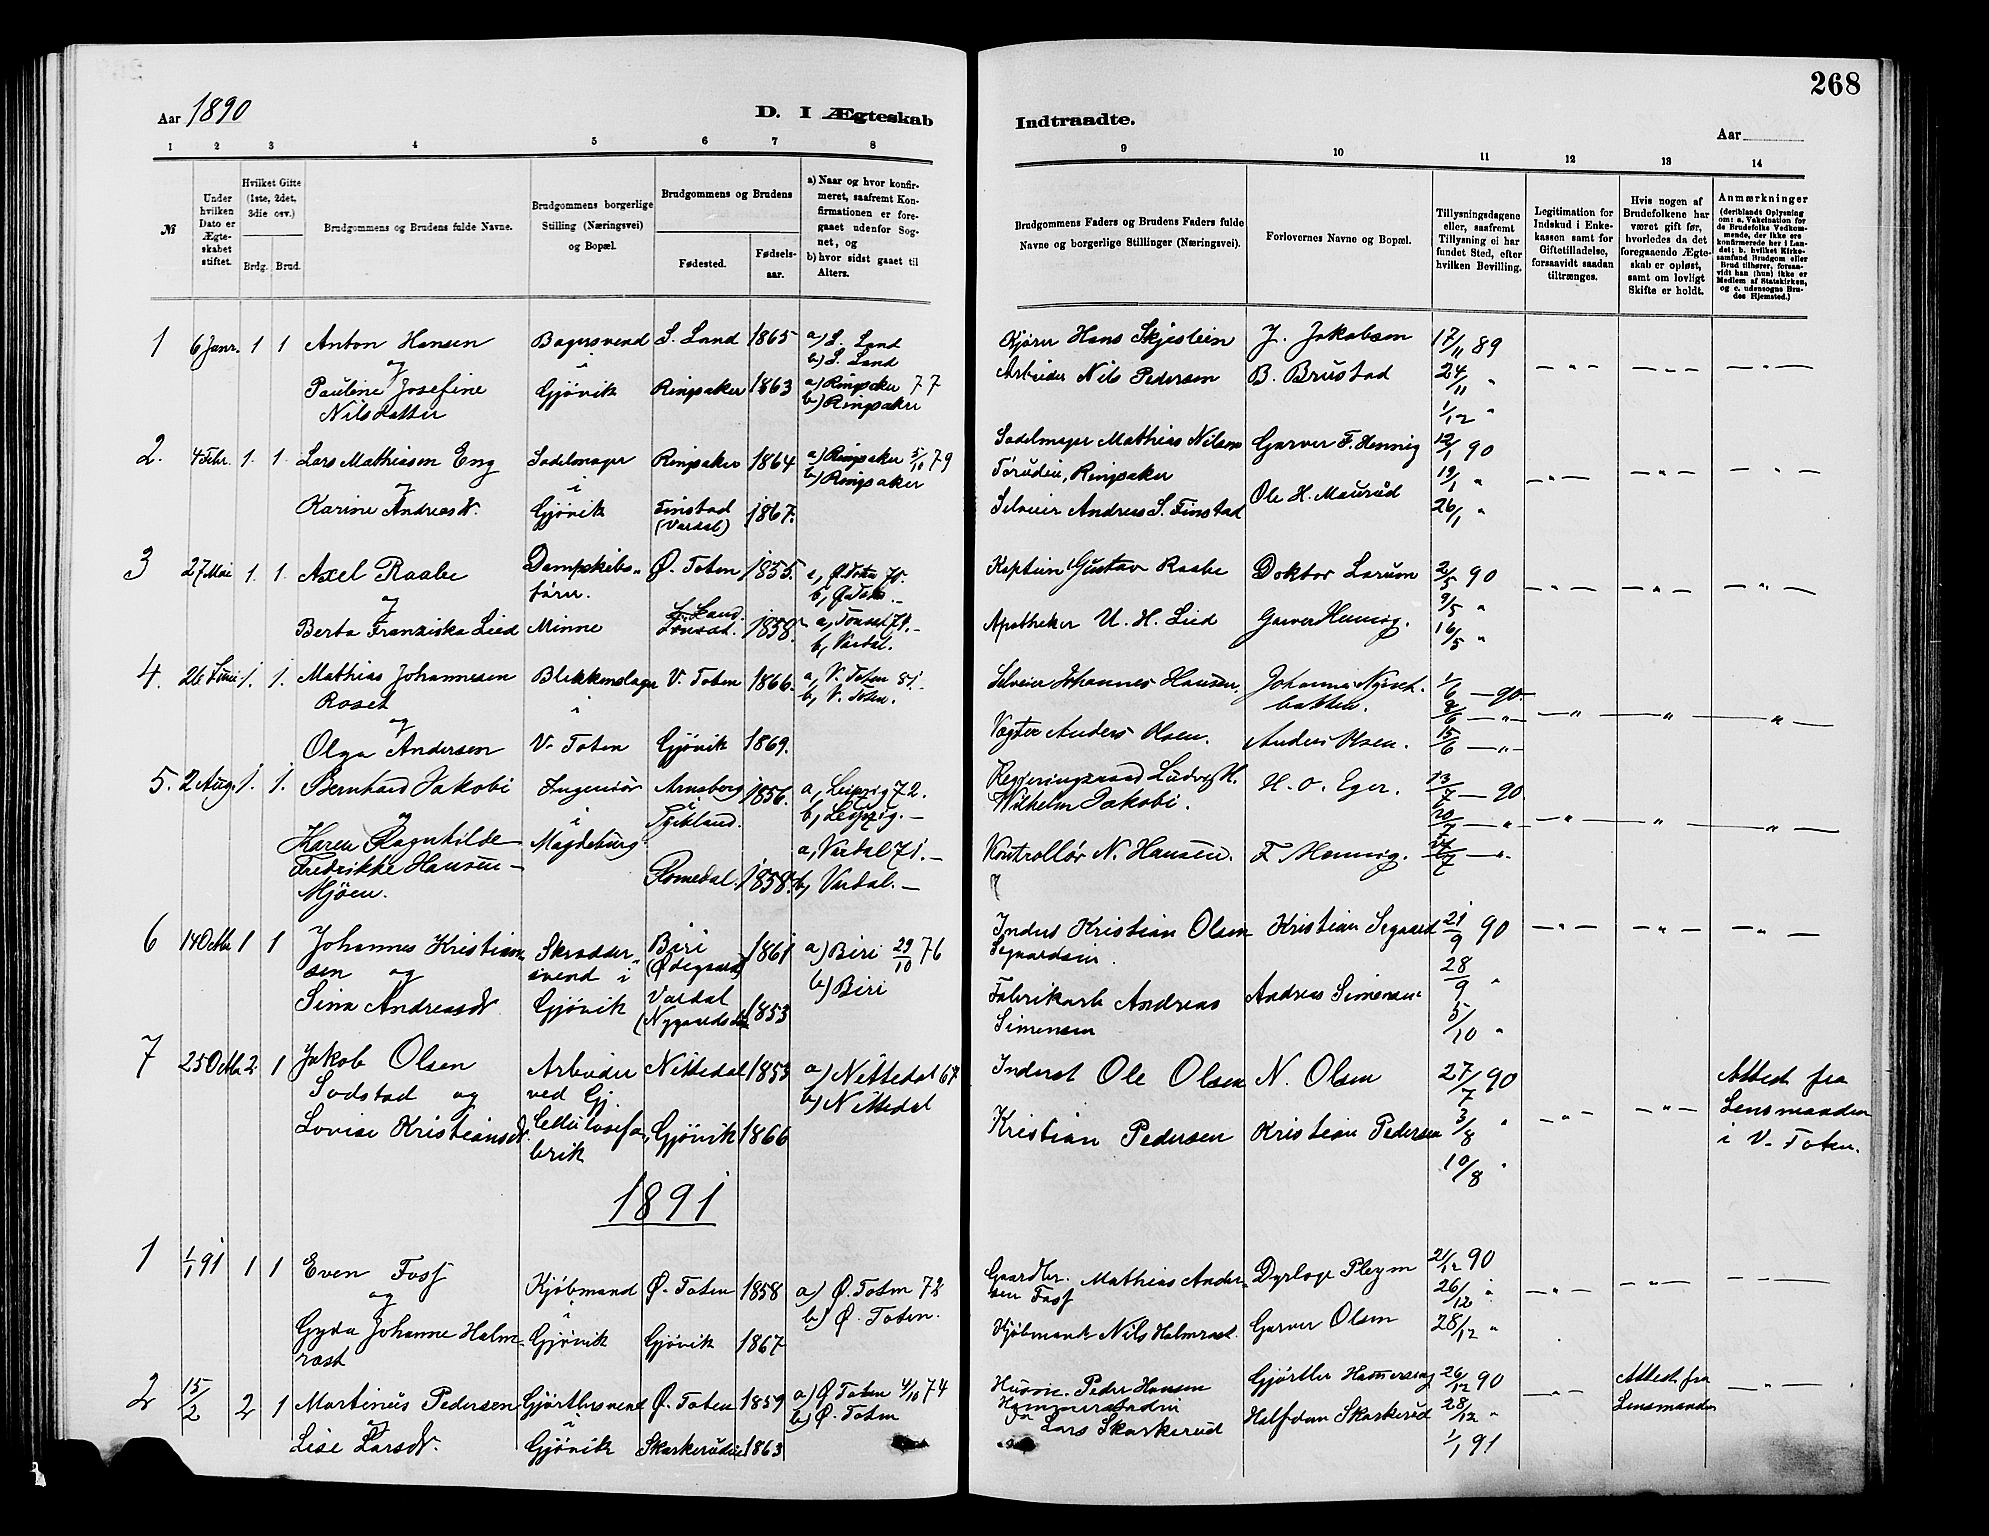 268
Aar 1890
D. I Ægteskab
Indtraadte.
Aar
1 2 3 4 5 6 7 8
9 10 11 12 13 14
№
Under hvilken Dato er Ægteskabet stiftet.
Hvilket Gifte (1ste, 2det, 3die osv.)
Brdg. Brud.
Brudgommens og Brudens fulde Navne.
Brudgommens borgerlige Stilling (Næringsvei) og Bopæl.
Brudgommens og Brudens
Fødested.
Fødselsaar.
a) Naar og hvor konfirmeret, saafremt Konfirmationen er foregaaet udenfor Sognet, og
b) hvor sidst gaaet til Alters.
Brudgommens Faders og Brudens Faders fulde Navne og borgerlige Stillinger (Næringsvei).
Forlovernes Navne og Bopæl.
Tillysningsdagene eller, saafremt Tillysning ei har fundet Sted, efter hvilken Bevilling.
Legitimation for Indskud i Enkekassen samt for Giftetilladelse, forsaavidt saadan tiltrænges.
Hvis nogen af Brudefolkene har været gift før, hvorledes da det foregaaende Ægteskab er opløst, samt om lovligt Skifte er holdt.
Anmærkninger
(deriblandt Oplysning om: a. Vakcination for de Brudefolks Vedkommende, der ikke ere konfirmerede her i Landet; b. hvilket Kirkesamfund Brudgom eller Brud tilhører, forsaavidt han (hun) ikke er Medlem af Statskirken, og c. udensogns Brudes Hjemsted.)
1 6 Janr. 1 1 Anton Hansen Bagersvend S. Land 1865 a) S. Land
og i b) S. Land
Pauline Josefine Gjøvik Ringsaker 1863 a) Ringsaker 77
Nilsdatter b) Ringsaker
Kjører Hans Skjeslein J. Jakobsen 17/11 89
Arbeider Nils Pedersen B. Brustad 24/11 "
1/12 "
2. 4 Febr. 1. 1. Lars Mathiasen Eng Sadelmager Ringsaker 1864 a) Ringsaker 5/10 79
og i b) Ringsaker
Karine Andreasd. Gjøvik Finstad (Vardal) 1867.
Sadelmager Mathias Nilsen Garver F. Hennig 12/1 90
Ringsaker 19/1 "
Selveier Andreas S. Finstad Ole H. Maurud 26/1 "
3 27 Mai 1. 1. Axel Raabe Dampskibsfører. Ø. Toten 1855. a, Ø. Toten 70.
og b, Ø. Toten
Berta Franziska Lied Minne 1858. a, 74.
b, Vardal.
Kaptein Gustav Raabe Doktor Larum 2/5 90
9/5 "
Apotheker U. H. Lied Garver Hennig. 16/5 "
4. 26 Juni 1. 1. Mathias Johannesen Blikkenslager V. Toten 1866. a, V. Toten 81.
Roset i b, V. Toten.
og
Olga Andersen V. Toten Gjøvik 1869.
Selveier Johannes Hansen. 1/6 - 90.
8/6 - "
Anders Olsen. Anders Olsen. 15/6 - "
5. 2 Aug. 1. 1. Bernhard Jakobi Ingeniør Arnsberg 1856. a, Leipzig 72.
og i i Tyskland. b, Leipzig.
Karen Ragnhilde Magdeburg a, Vardal 71.
Fredrikke Hansen - Romedal. 1858. b, Vardal.
Mjøen.
Regjeringsraad Ludvig H. H. O. Eger. 13/7 - 90
Wilhelm Jakobi. 20/7 - "
Kontrollør N. Hansen. F. Hennig. 27/7 - "
6 14 Octbr. 1 1 Johannes Kristian- Skrædder- Biri 1861 a) Biri 29/10 76
sen og svend i (Ødegaard) b) Biri
Sina Andreasd. Gjøvik Vardal 1853
Inderst Kristian Olsen Kristian Segaard 21/9 90
28/9 "
Fabrikarb. Andreas Andreas Simensen 5/10 "
Simensen
7 25 Octbr. 2 1 Jakob Olsen Arbeider Nittedal 1853 a) Nittedal 67
Sodstad og ved Gj. b) Nittedal
Lovise Kristiansd. Cellulosefabrik Gjøvik 1866
Inderst Ole Olsen N. Olsen 27/7 90 Attest fra
Kristian Pedersen Kristian Pedersen 3/8 " Lensmanden
10/8 " i V. Toten.
1891
1 1/1 91 1 1 Even Fosf Kjøbmand Ø. Toten 1858 a) Ø. Toten 72
og i b) Ø. Toten.
Gyda Johanne Halm- Gjøvik Gjøvik 1867
rast
Gaardbr. Mathias Ander- Dyrlæge Pleym 21/12 90
sen Fosf 26/12 "
Kjøbmand Nils Halmrast. Garver Olsen 28/12 "
2 15/2 2 1 Martinus Pedersen Gjørtlersvend Ø. Toten 1859 a) Ø. Toten 4/10 74
og i b) Ø. Toten
Lise Larsd. Gjøvik 1863
Husm. Peder Hansen Gjørtler Hammerseng 26/12 90 Attest fra
28/12 " Lensmanden
Lars Skarkerud Halfdan Skarkerud 1/1 91